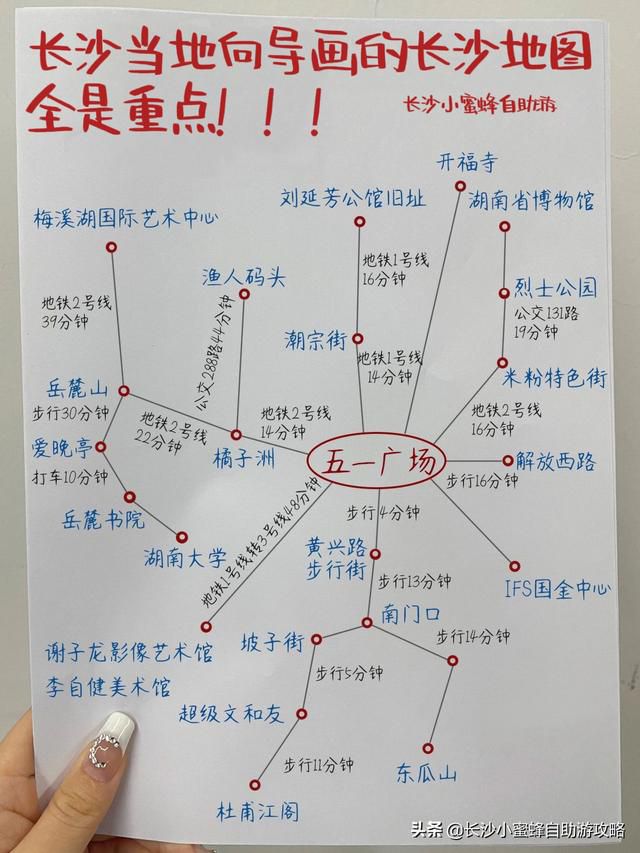 长沙当地向导画的长沙地图
全是重点！！！
长沙小蜜蜂自助游
开福寺
刘延芳公馆旧址
湖南省博物馆
梅溪湖国际艺术中心
地铁1号线
16分钟
渔人码头
烈士公园
地铁2号线
39分钟
公交131路
19分钟
公交288路44分钟
潮宗街
地铁1号线
14分钟
米粉特色街
岳麓山
步行30分钟
地铁2号线
22分钟
地铁2号线
14分钟
地铁2号线
16分钟
爱晚亭
橘子洲
五一广场
解放西路
打车10分钟
步行16分钟
岳麓书院
地铁1号线转3号线48分钟
步行4分钟
湖南大学
黄兴路
步行街
IFS国金中心
步行13分钟
南门口
谢子龙影像艺术馆
李自健美术馆
坡子街
步行14分钟
步行5分钟
超级文和友
步行11分钟
东瓜山
杜甫江阁
头条 @长沙小蜜蜂自助游攻略